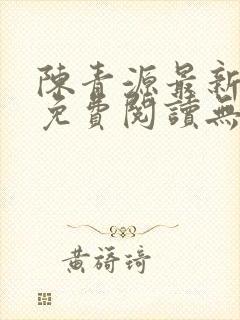 陳青源最新
免費閱讀無
黃簃琦